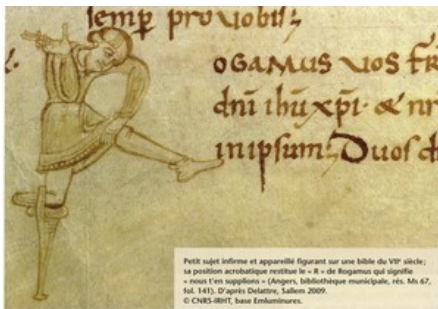 semp pro vobis;
OGAMUS vos fr
dnī ihū xp̄i· & nr
inipsum; Duos d
Petit sujet infirme et appareillé figurant sur une bible du VIIe siècle;
sa position acrobatique restitue le « R » de Rogamus qui signifie
« nous t'en supplions » (Angers, bibliothèque municipale, rés. Ms 67,
fol. 141). D'après Delattre, Sallem 2009.
© CNRS-IRHT, base Emluminures.